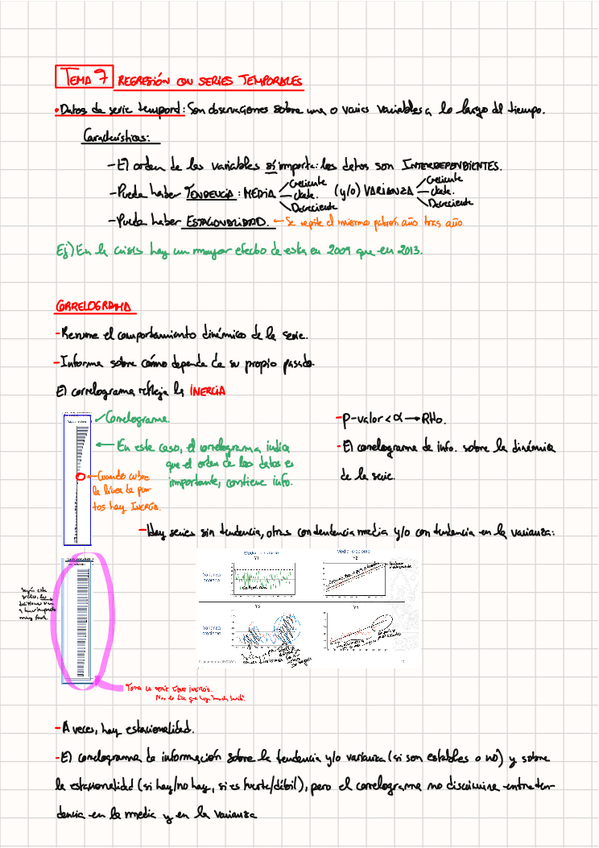 TEMA 7 REGRESIÓN CON SERIES TEMPORALES
• Datos de serie temporal: Son observaciones sobre una o varias variables a lo largo del tiempo.
Características:
- El orden de las variables sí importa: los datos son INTERDEPENDIENTES.
- Puede haber TENDENCIA: MEDIA Creciente cte. Decreciente (y/o) VARIANZA Creciente cte. Decreciente
- Puede haber ESTACIONALIDAD. ← Se repite el mismo patrón año tras año
Ej) En la crisis hay un mayor efecto de esta en 2009 que en 2013.
CORRELOGRAMA
- Resume el comportamiento dinámico de la serie.
- Informa sobre cómo depende de su propio pasado.
El correlograma refleja la INERCIA
Correlograma.
← En este caso, el correlograma indica
que el orden de los datos es
importante, contiene info.
- Cuando cubre
la línea de pun-
tos hay INERCIA.
- P-valor < α → RHo.
- El correlograma da info. sobre la dinámica
de la serie.
- Hay series sin tendencia, otras con tendencia media y/o con tendencia en la varianza:
Y1
Y2
Y3
Y4
Toda la serie tiene inercia.
- A veces, hay estacionalidad.
- El correlograma da información sobre la tendencia y/o varianza (si son estables o no) y sobre
la estacionalidad (si hay/no hay, si es fuerte/débil), pero el correlograma no discrimina entre ten-
dencia en la media y en la varianza